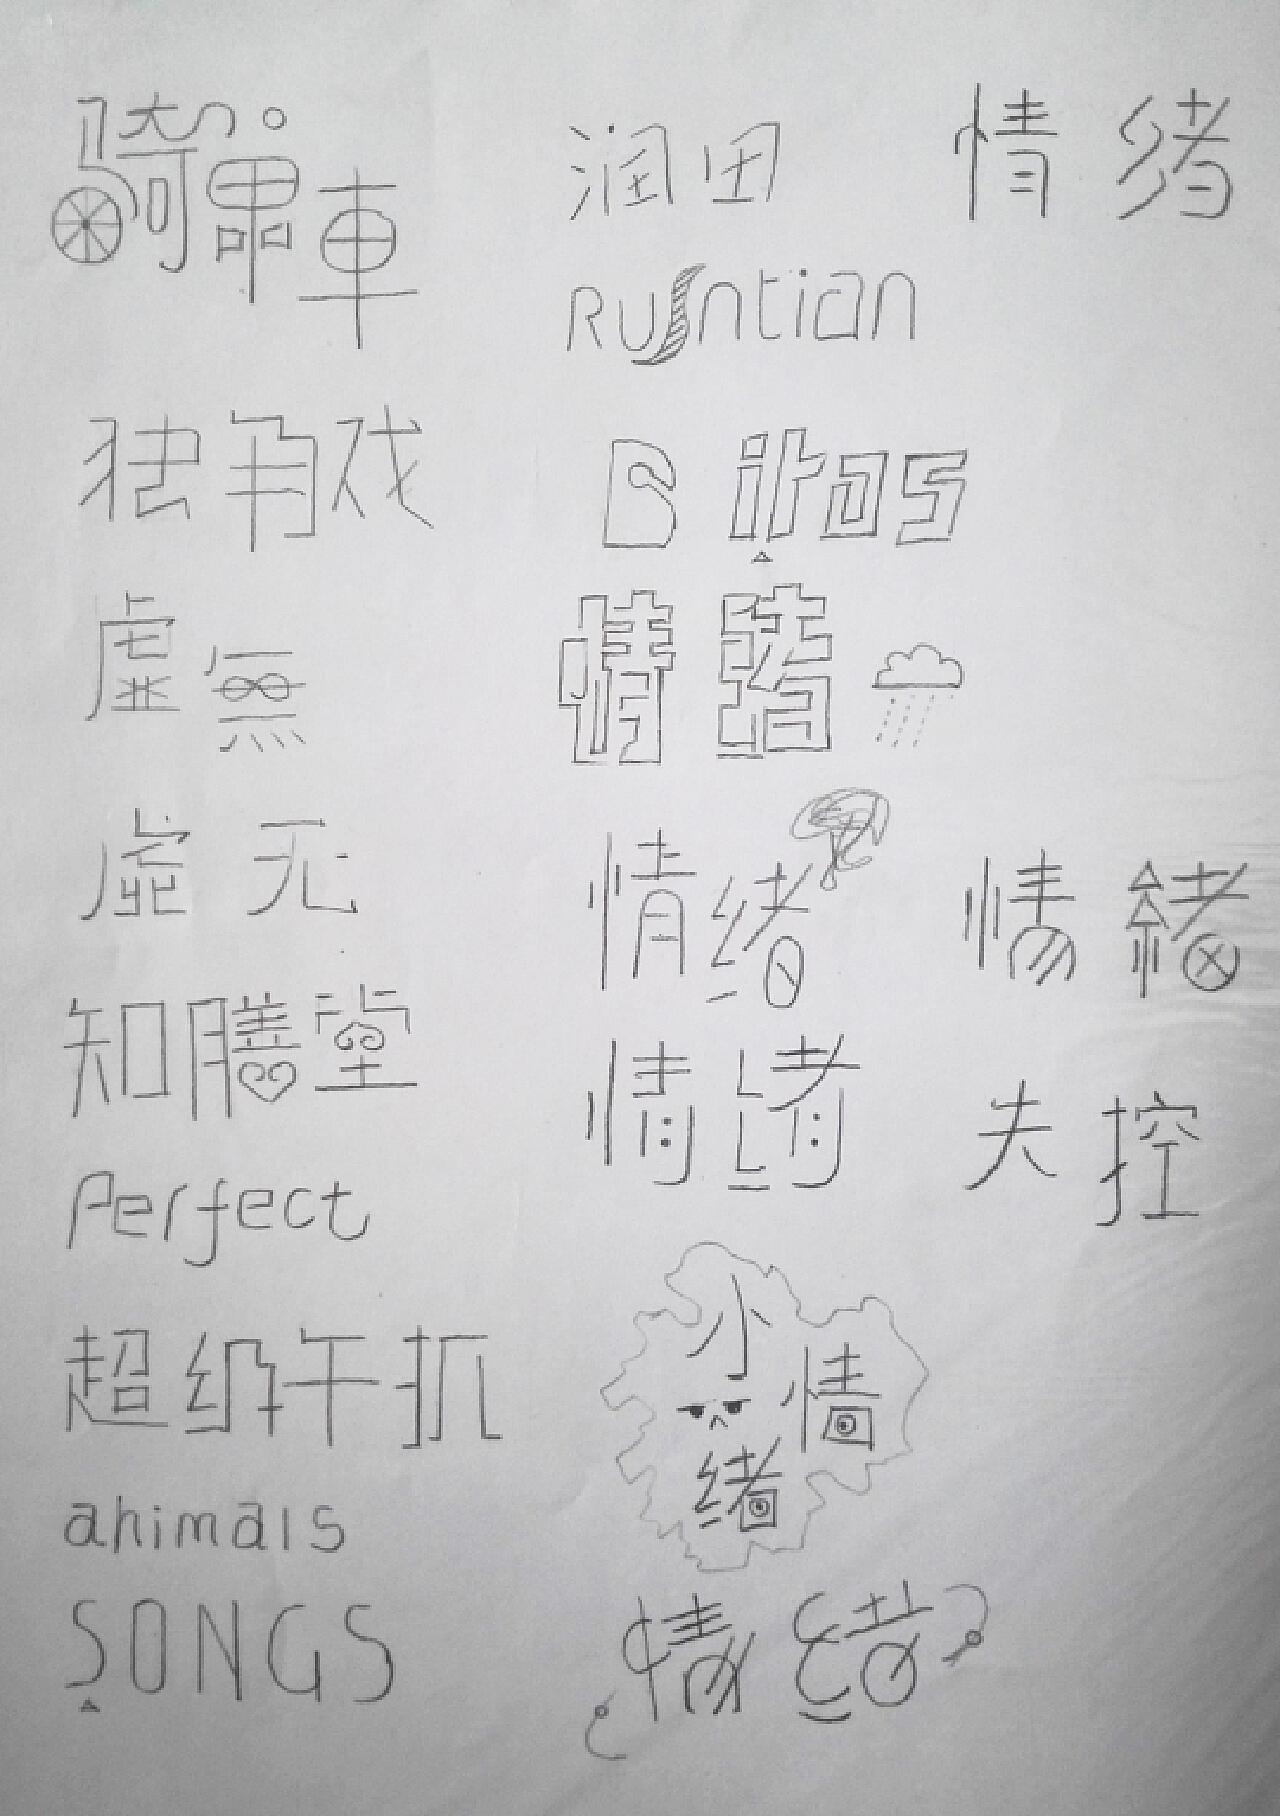 骑单車
独角戏
虚無
虚无
知膳堂
Perfect
超级午扒
animals
SONGS
润田
Runtian
情绪
情绪
情绪
情绪
小情绪
情绪
情绪
情緒
失控